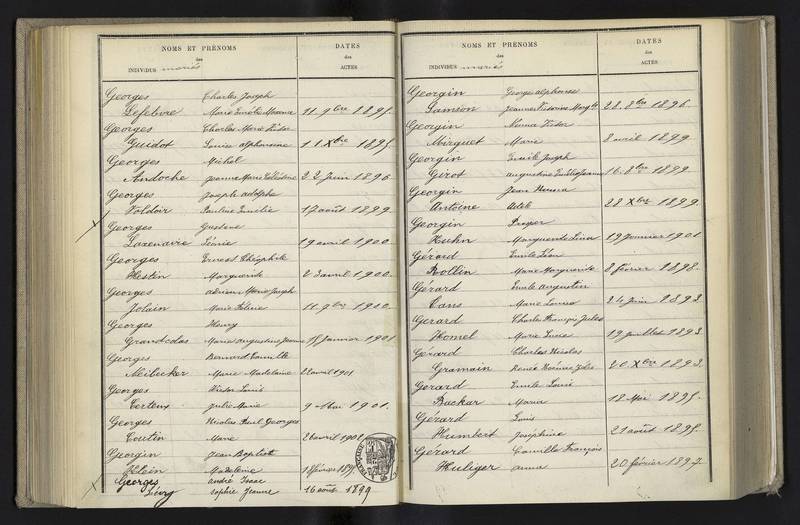 NOMS ET PRÉNOMS
des
INDIVIDUS mariés
DATES
des
ACTES
Georges Charles Joseph
Lefebvre Marie 11. 9bre 1895.
Georges Charles Marie Victor
Guidot Louise Alphonsine 11 Xbre 1895
Georges Michel
Andoche Jeanne Marie Célestine 22 Juin 1896
Georges Joseph Adolphe
Voldoir Pauline Emilie 17 août 1899.
Georges Gustave
Laxenavie Léonie 19 avril 1900.
Georges Ernest Théophile
Hestin Marguerite 23 avril 1900.
Georges Adrien Marie Joseph
Jolain Marie 11. 9bre 1900.
Georges Henry
Grandcolas Marie Augustine Jeanne 18 Janvier 1901
Georges Bernard Camille
Meibecker Marie Madeleine 22 avril 1901
Georges Victor Louis
Certeux Julie Marie 9 Mai 1901.
Georges Nicolas Paul Georges
Coutin Marie 26 avril 1902
Georgin Jean Baptiste
Klein Madeleine 18 février 1895
Georges André Isaac
Liévy Sophie Jeanne 16 août 1899
NOMS ET PRÉNOMS
des
INDIVIDUS mariés
DATES
des
ACTES
Georgin George Alphonse
Samson Jeanne Victorine 28. 8bre 1896.
Georgin Numa Victor
Mirguet Marie 8 avril 1899.
Georgin Emile Joseph
Girot Augustine 16. 8bre 1899.
Georgin Jean
Antoine Adèle 28 Xbre 1899.
Georgin Prosper
Kuhn Marguerite Lina 19 Janvier 1901
Gérard Emile Léon
Rollin Marie Marguerite 8 février 1898.
Gérard Emile Augustin
Cans Marie Louise 24 Juin 1893.
Gerard Charles François Jules
Homel Marie Lucie 19 Juillet 1893.
Gérard Charles Nicolas
Gramain Renée 20 Xbre 1893.
Gerard Emile Louis
Backar Maria 18 Mai 1895.
Gérard Louis
Humbert Joséphine 21 août 1895.
Gérard Camille François
Huliger Anna 20 février 1897.